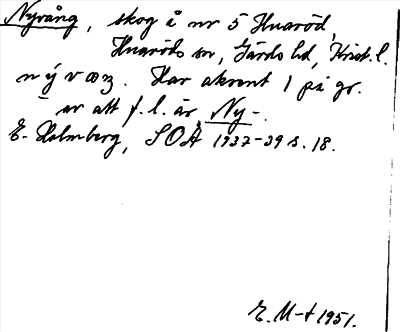 Nyvång, skog å nr 5 Huaröd,
Huaröds sn, Gärds hd, Krist. l.
Har akcent 1 på gr.
av att f. l. är Ny-.
E. Holmberg, SOÅ 1937-39 s. 18.
E. M-t 1951.